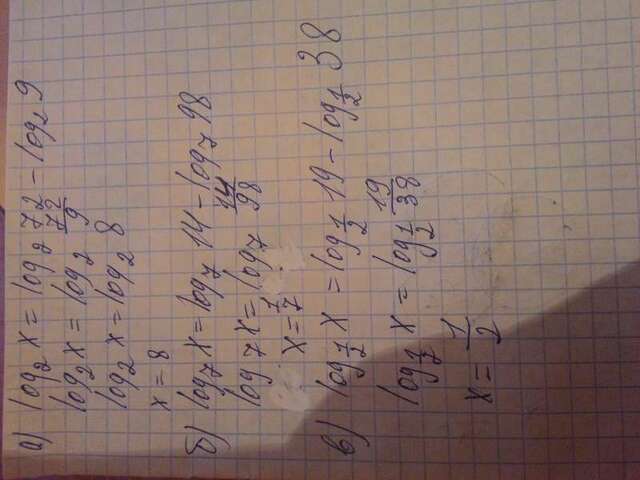 а) log₂ x = log₂ 72 - log₂ 9
log₂ x = log₂ 72/9
log₂ x = log₂ 8
x = 8
б) log₇ x = log₇ 14 - log₇ 98
log₇ x = log₇ 14/98
x = 1/7
в) log_1/2 x = log_1/2 19 - log_1/2 38
log_1/2 x = log_1/2 19/38
x = 1/2